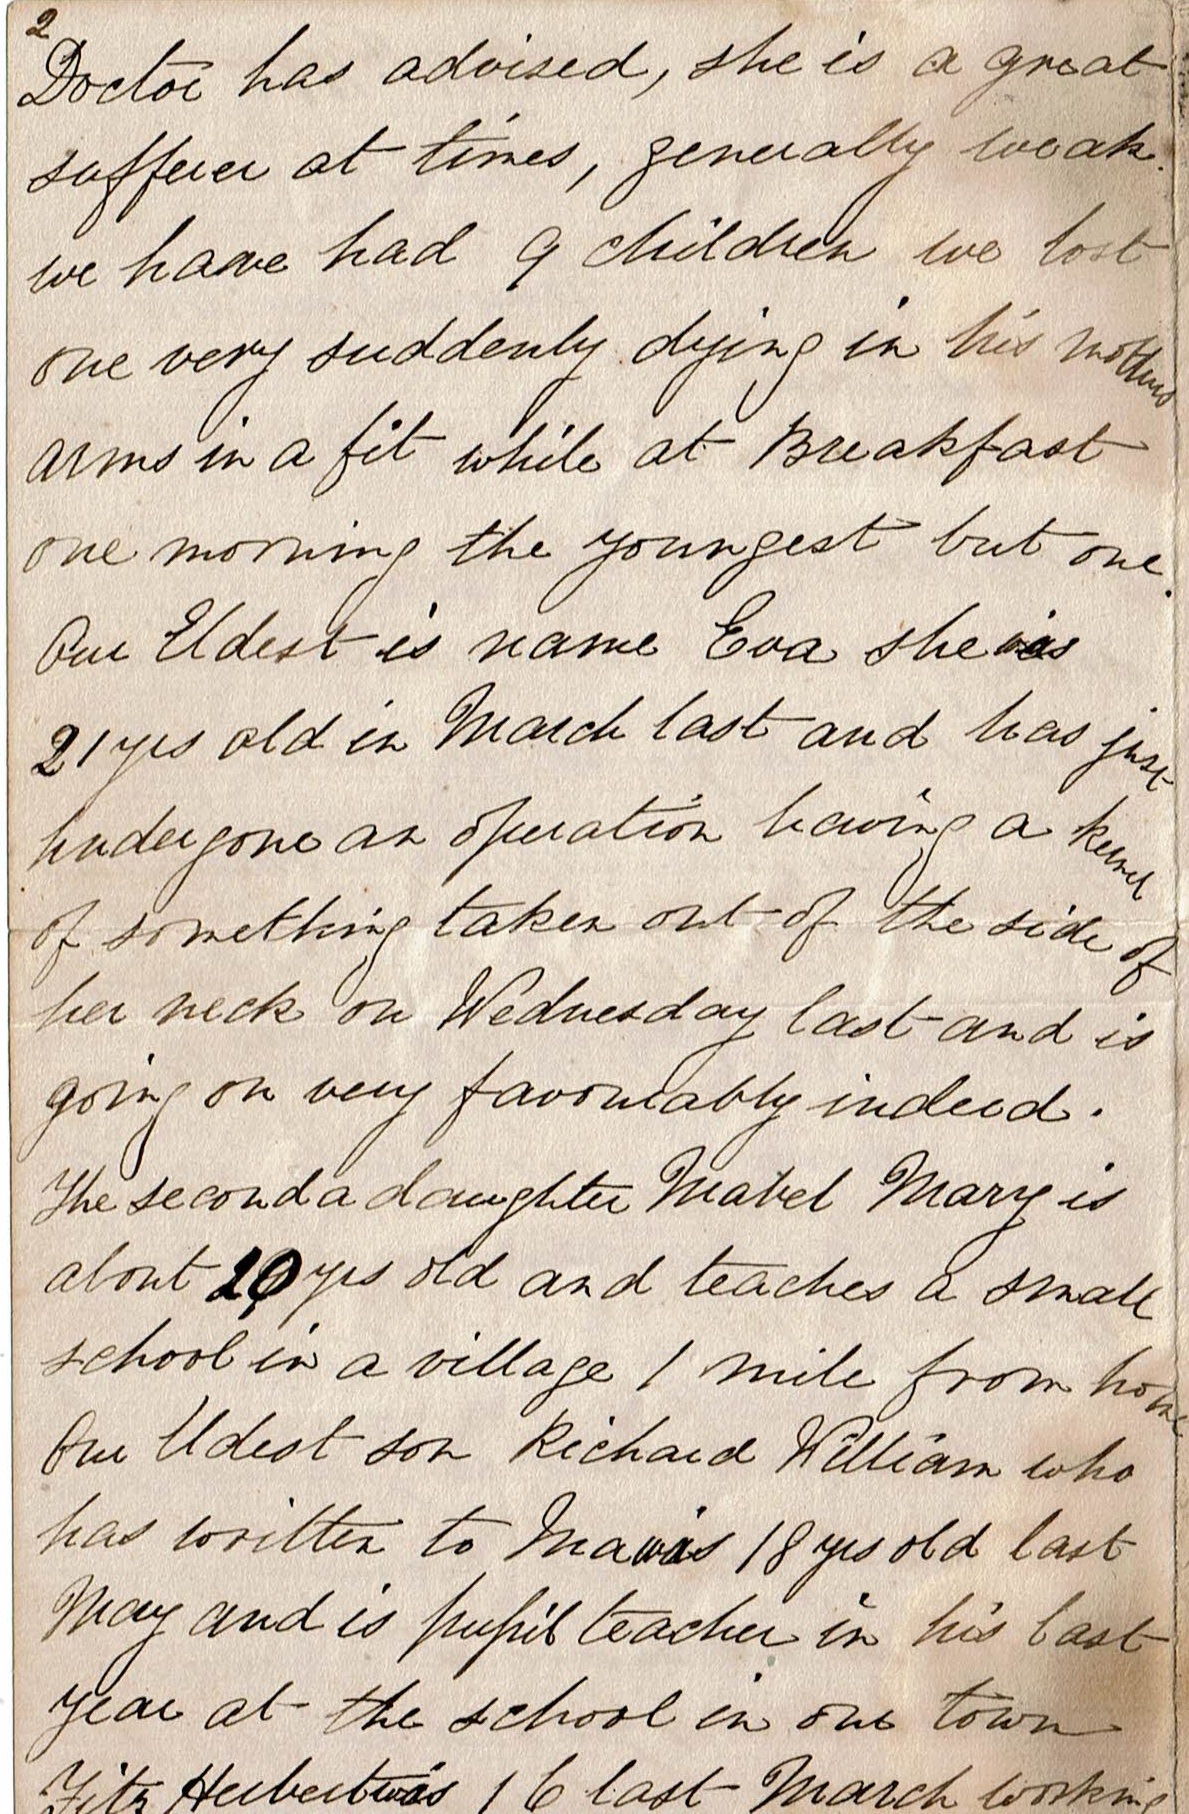 2
Doctor has advised, she is a great
sufferer at times, generally weak.
we have had 9 children we lost
one very suddenly dying in his mothers
arms in a fit while at Breakfast
one morning the youngest but one.
Our Eldest is name Eva she was
21 yrs old in March last and has just
undergone an operation having a kernel
of something taken out of the side of
her neck on Wednesday last and is
going on very favourably indeed.
The second a daughter Mabel Mary is
about 20 yrs old and teaches a small
school in a village 1 mile from home
Our Eldest son Richard William who
has written to Ma was 18 yrs old last
May and is pupil teacher in his last
year at the school in our town
Fitz Herbert was 16 last March working